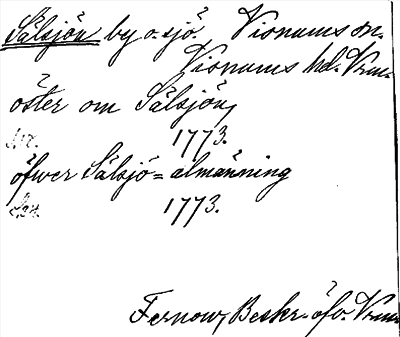 Sälsjön by o. sjö. Visnums sn.
Visnums hd. Vrml.
öster om Sälsjön,
1773.
öfwer Sälsjö=almänning
1773.
Fernow, Beskr. öfv. Vrml.